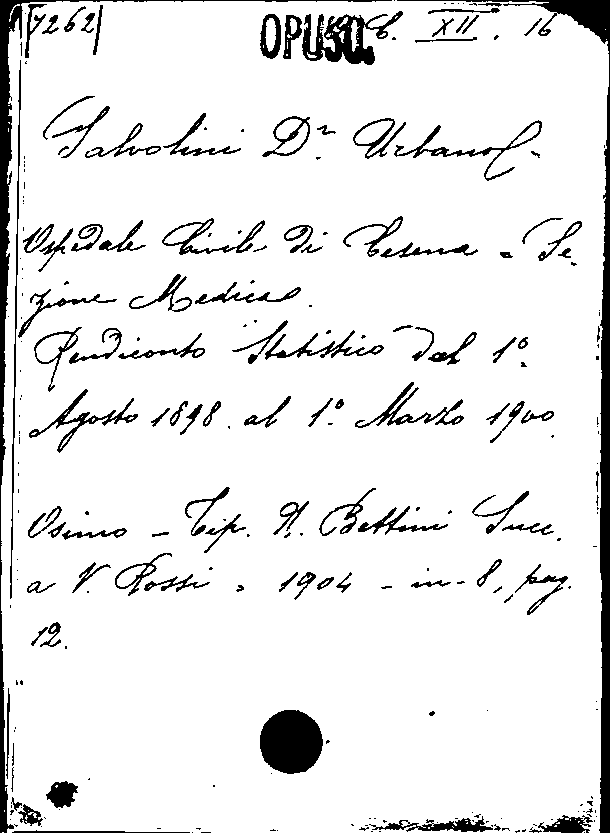 7262 OPUSC. C. XII. 16
Salvolini Dr. Urbano -
Ospedale Civile di Cesena - Se-
zione Medica.
Rendiconto Statistico dal 1º
Agosto 1898 al 1º Marzo 1900.
Osimo - Tip. A. Bettini Succ.
a V. Rossi - 1904 - in-8, pag.
12.